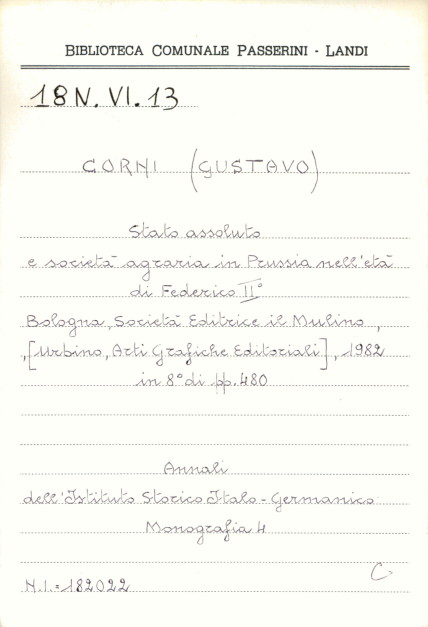 BIBLIOTECA COMUNALE PASSERINI - LANDI
18 N. VI. 13
CORNI (GUSTAVO)
Stato assoluto
e società agraria in Prussia nell'età
di Federico II°
Bologna, Società Editrice il Mulino,
,[Urbino, Arti Grafiche Editoriali], 1982
in 8° di pp. 480
Annali
dell'Istituto Storico Italo-Germanico
Monografia 4
C-
N.I.=182022